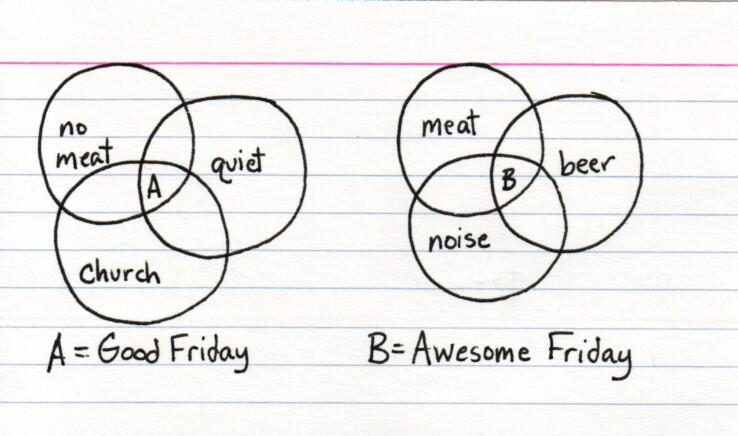 no
meat
quiet
A
Church
A = Good Friday
meat
beer
B
noise
B= Awesome Friday